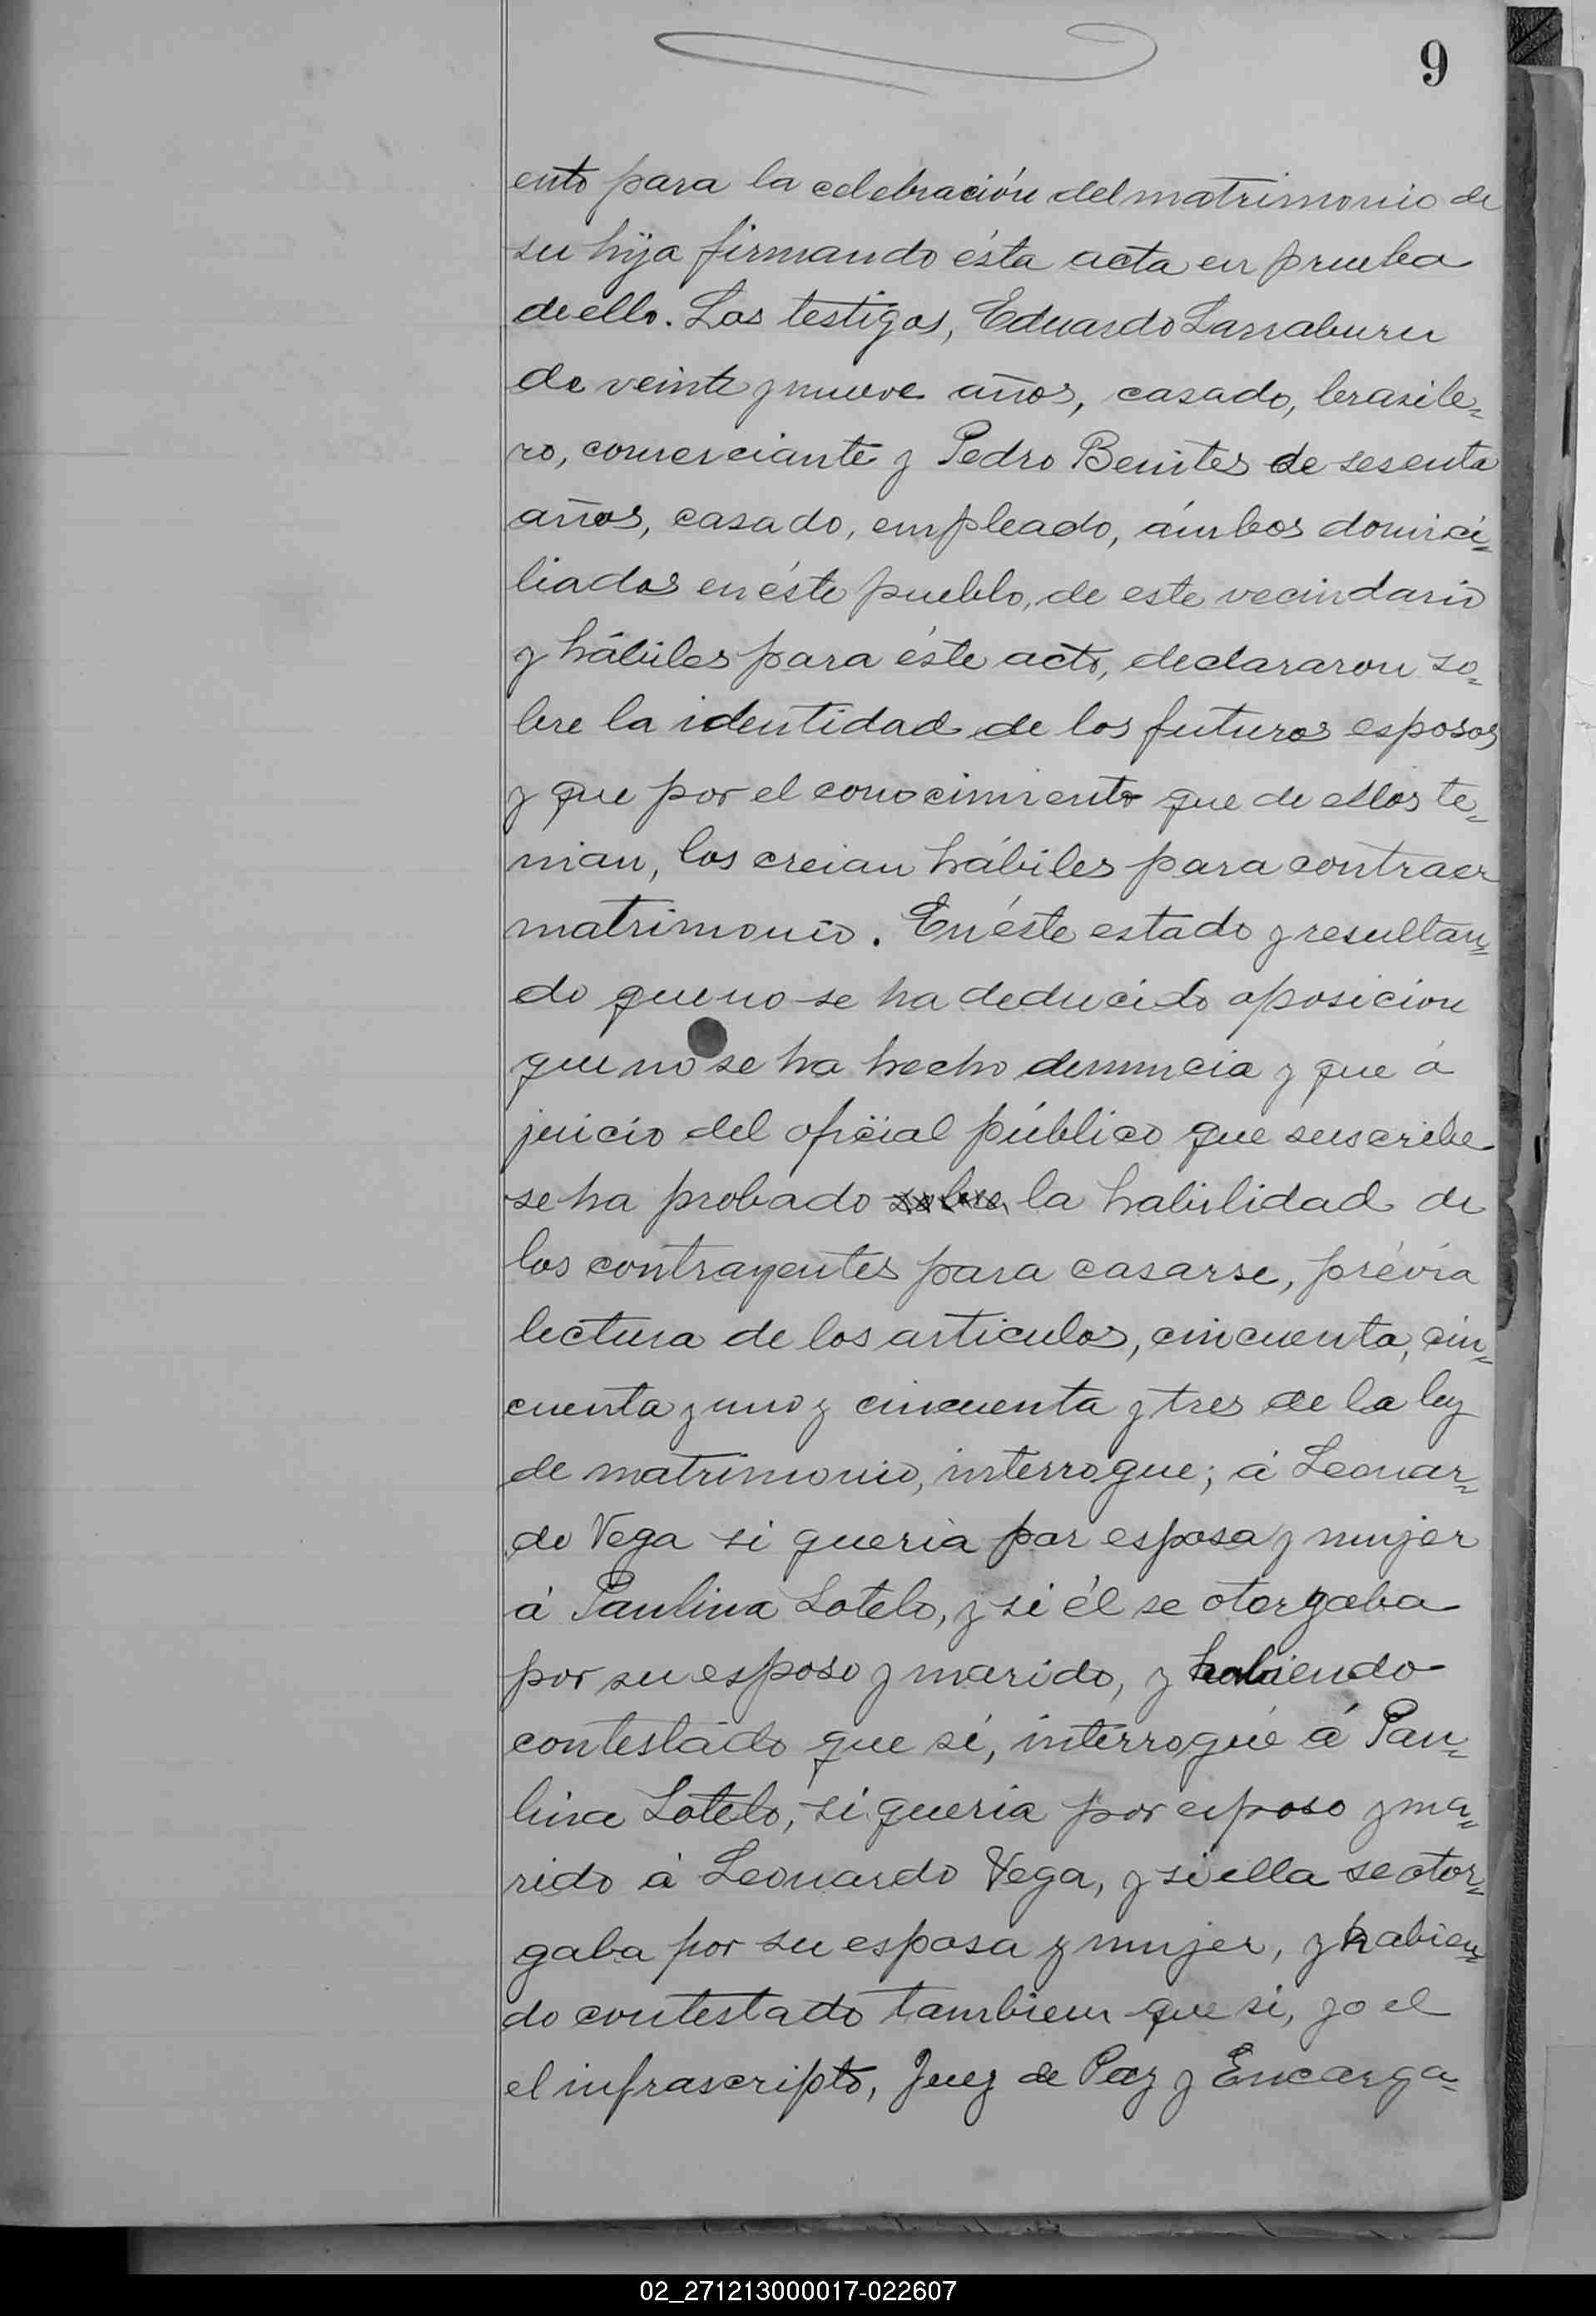 9
ento para la celebración del matrimonio de
su hija firmando ésta acta en prueba
de ello. Los testigos, Eduardo Larraburu
de veinte y nueve años, casado, brasile=
ro, comerciante y Pedro Benites de sesenta
años, casado, empleado, ámbos domici=
liados en éste pueblo, de este vecindario
y hábiles para éste acto, declararon so=
bre la identidad de los futuros esposos
y que por el conocimiento que de ellos te=
nian, los creian hábiles para contraer
matrimonio. En éste estado y resultan=
do que no se ha deducido oposicion
que no se ha hecho denuncia y que á
juicio del oficial público que suscribe
se ha probado sobre la habilidad de
los contrayentes para casarse, prévia
lectura de los articulos, cincuenta, cin=
cuenta y uno y cincuenta y tres de la ley
de matrimonio, interrogue; á Leonar=
do Vega si queria por esposa y mujer
á Paulina Sotelo, y si él se otorgaba
por su esposo y marido, y habiendo
contestado que sí, interrogué á Pau=
lina Sotelo, si queria por esposo y ma=
rido á Leonardo Vega, y si ella se otor=
gaba por su esposa y mujer, y habien=
do contestado tambien que si, yo el
el infrascripto, Juez de Paz y Encarga=
02_271213000017-022607